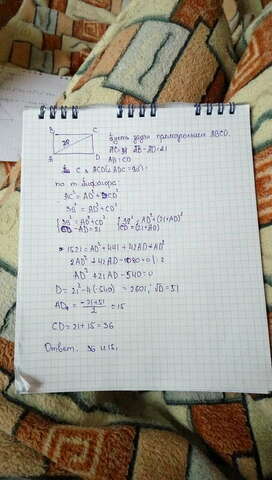 B C
39
A D
Пусть задан прямоугольник ABCD.
AC=39 AB-AD=21
AB=CD
по т. Пифагора:
AC²=AD²+CD²
39²=AD²+CD²
39²=AD²+CD² 39²=AD²+(21+AD)²
CD-AD=21 CD=(21+AD)
1521=AD²+441+42AD+AD²
2AD²+42AD-1080=0 |:2
AD²+21AD-540=0
D=21²-4·(-540)=2601; √D=51
AD₁=(-21+51)/2=15
CD=21+15=36
Ответ: 36 и 15.